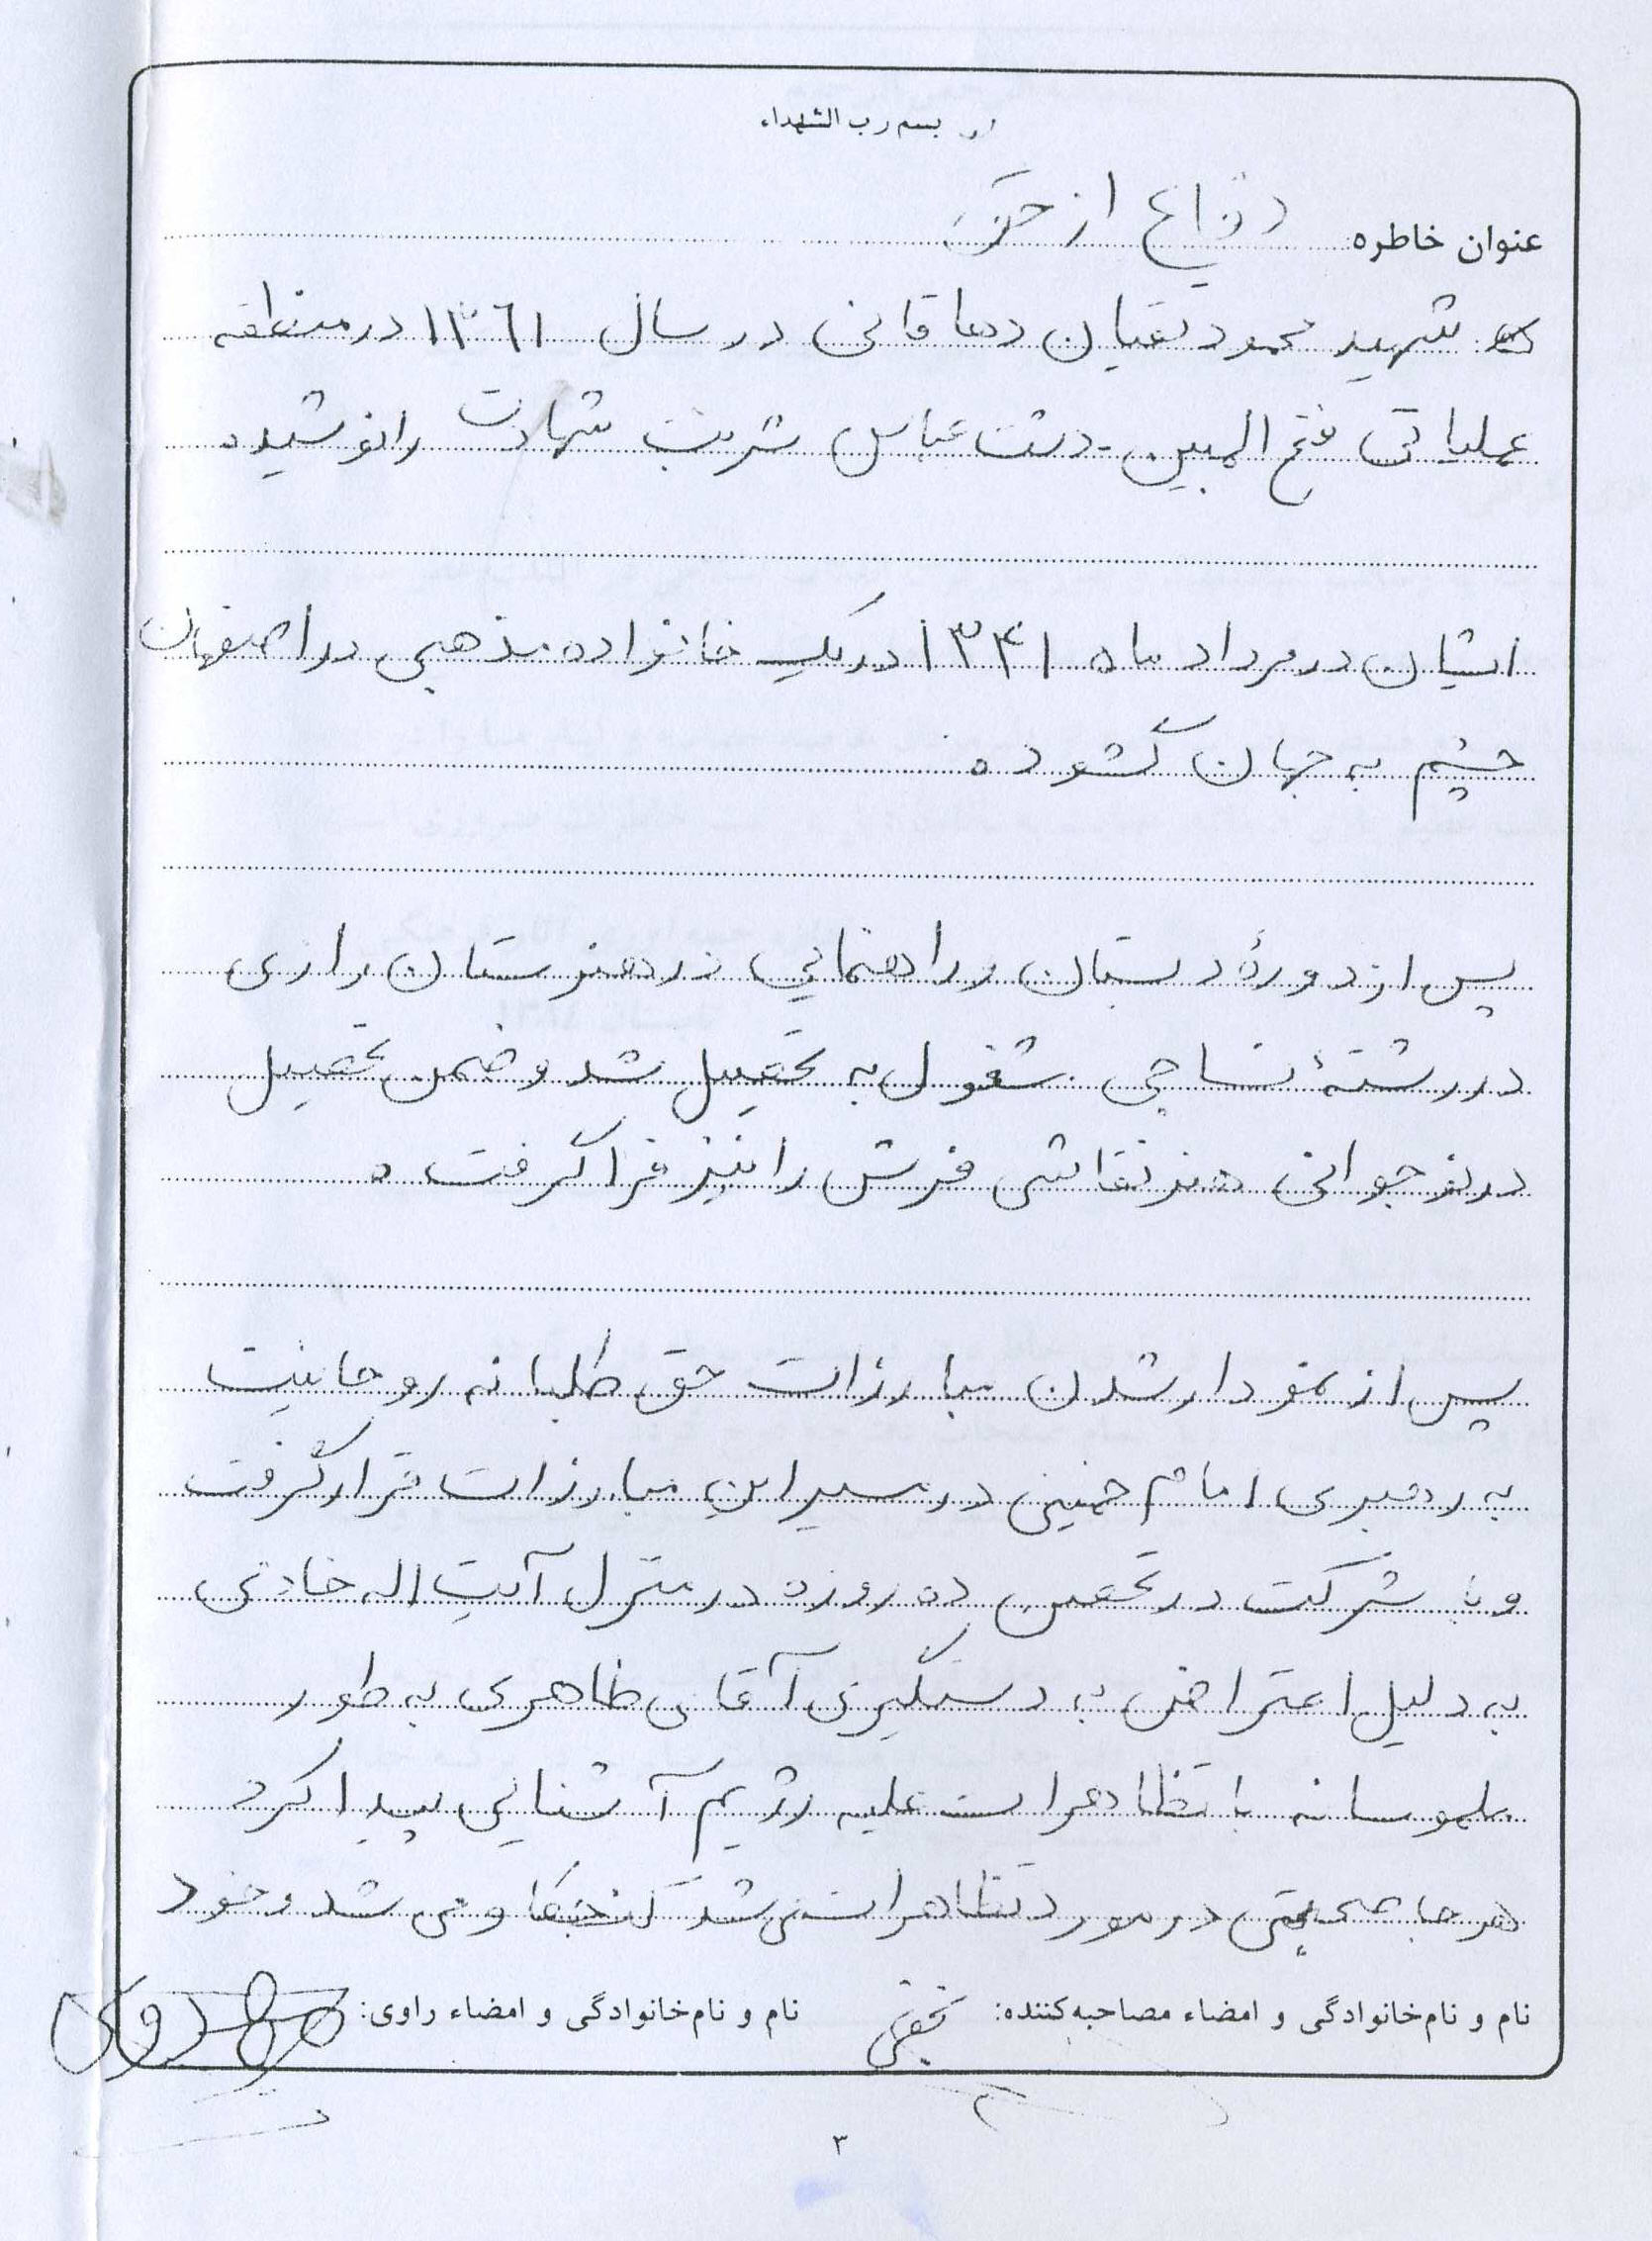 بسم رب الشهداء
عنوان خاطره دفاع از حق
شهید محمود تقیان دهاقانی در سال ۱۳۶۱ در منطقه
عملیاتی فتح المبین - دشت عباس شربت شهادت را نوشیده
ایشان در مرداد ماه ۱۳۴۱ در یک خانواده مذهبی در اصفهان
چشم به جهان گشوده
پس از دورهٔ دبستان و راهنمایی در هنرستان رازی
در رشتهٔ نساجی مشغول به تحصیل شد و ضمن تحصیل
در نوجوانی هنر نقاشی فرش را نیز فرا گرفت.
پس از نمودار شدن مبارزات حق طلبانه روحانیت
به رهبری امام خمینی در مسیر این مبارزات قرار گرفت
و با شرکت در تحصن ده روزه در منزل آیت اله خادمی
به دلیل اعتراض به دستگیری آقای طاهری به طور
ملموسانه با تظاهرات علیه رژیم آشنایی پیدا کرد
هر جا صحبتی در مورد تظاهرات می شد کنجکاو می شد و خود
نام و نام‌خانوادگی و امضاء مصاحبه‌کننده:
نام و نام‌خانوادگی و امضاء راوی:
۳